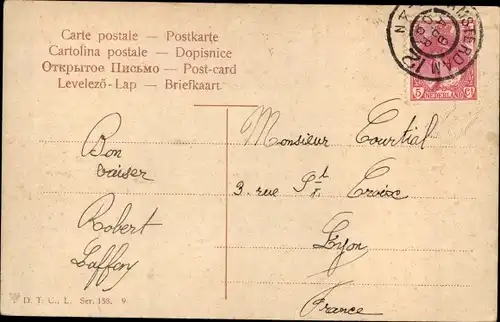 Carte postale — Postkarte
Cartolina postale — Dopisnice
Открытое Письмо — Post-card
Levelező-Lap — Briefkaart
AMSTERDAM 12
5 NEDERLAND Ct
Bon
baiser
Robert
Laffon
Monsieur Courtial
3 rue St Croix
Lyon
France
D. T. C., L. Ser. 158. 9